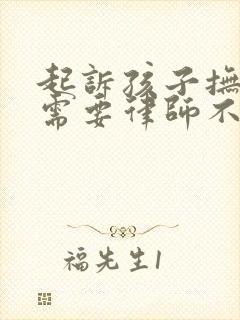 起訴孩子撫
需要律師不
福先生1